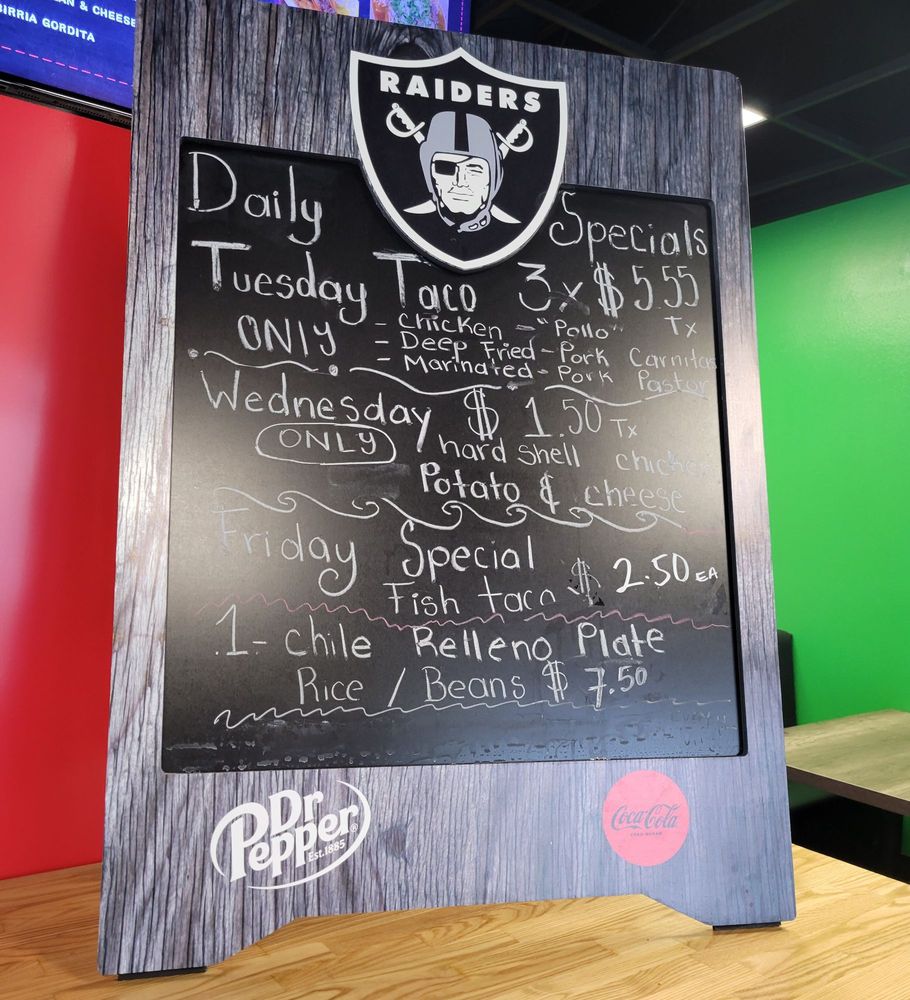 AN & CHEESE
BIRRIA GORDITA
RAIDERS
Daily Specials
Tuesday Taco 3x $5.55
ONly - Chicken - "Pollo" Tx
- Deep Fried - Pork Carnitas
- Marinated - Pork Pastor
Wednesday $1.50 Tx
ONLY / hard shell chicken
Potato & cheese
Friday Special $2.50 EA
Fish taco
.1- chile Relleno Plate
Rice / Beans $7.50
Dr Pepper
Est. 1885
Coca-Cola